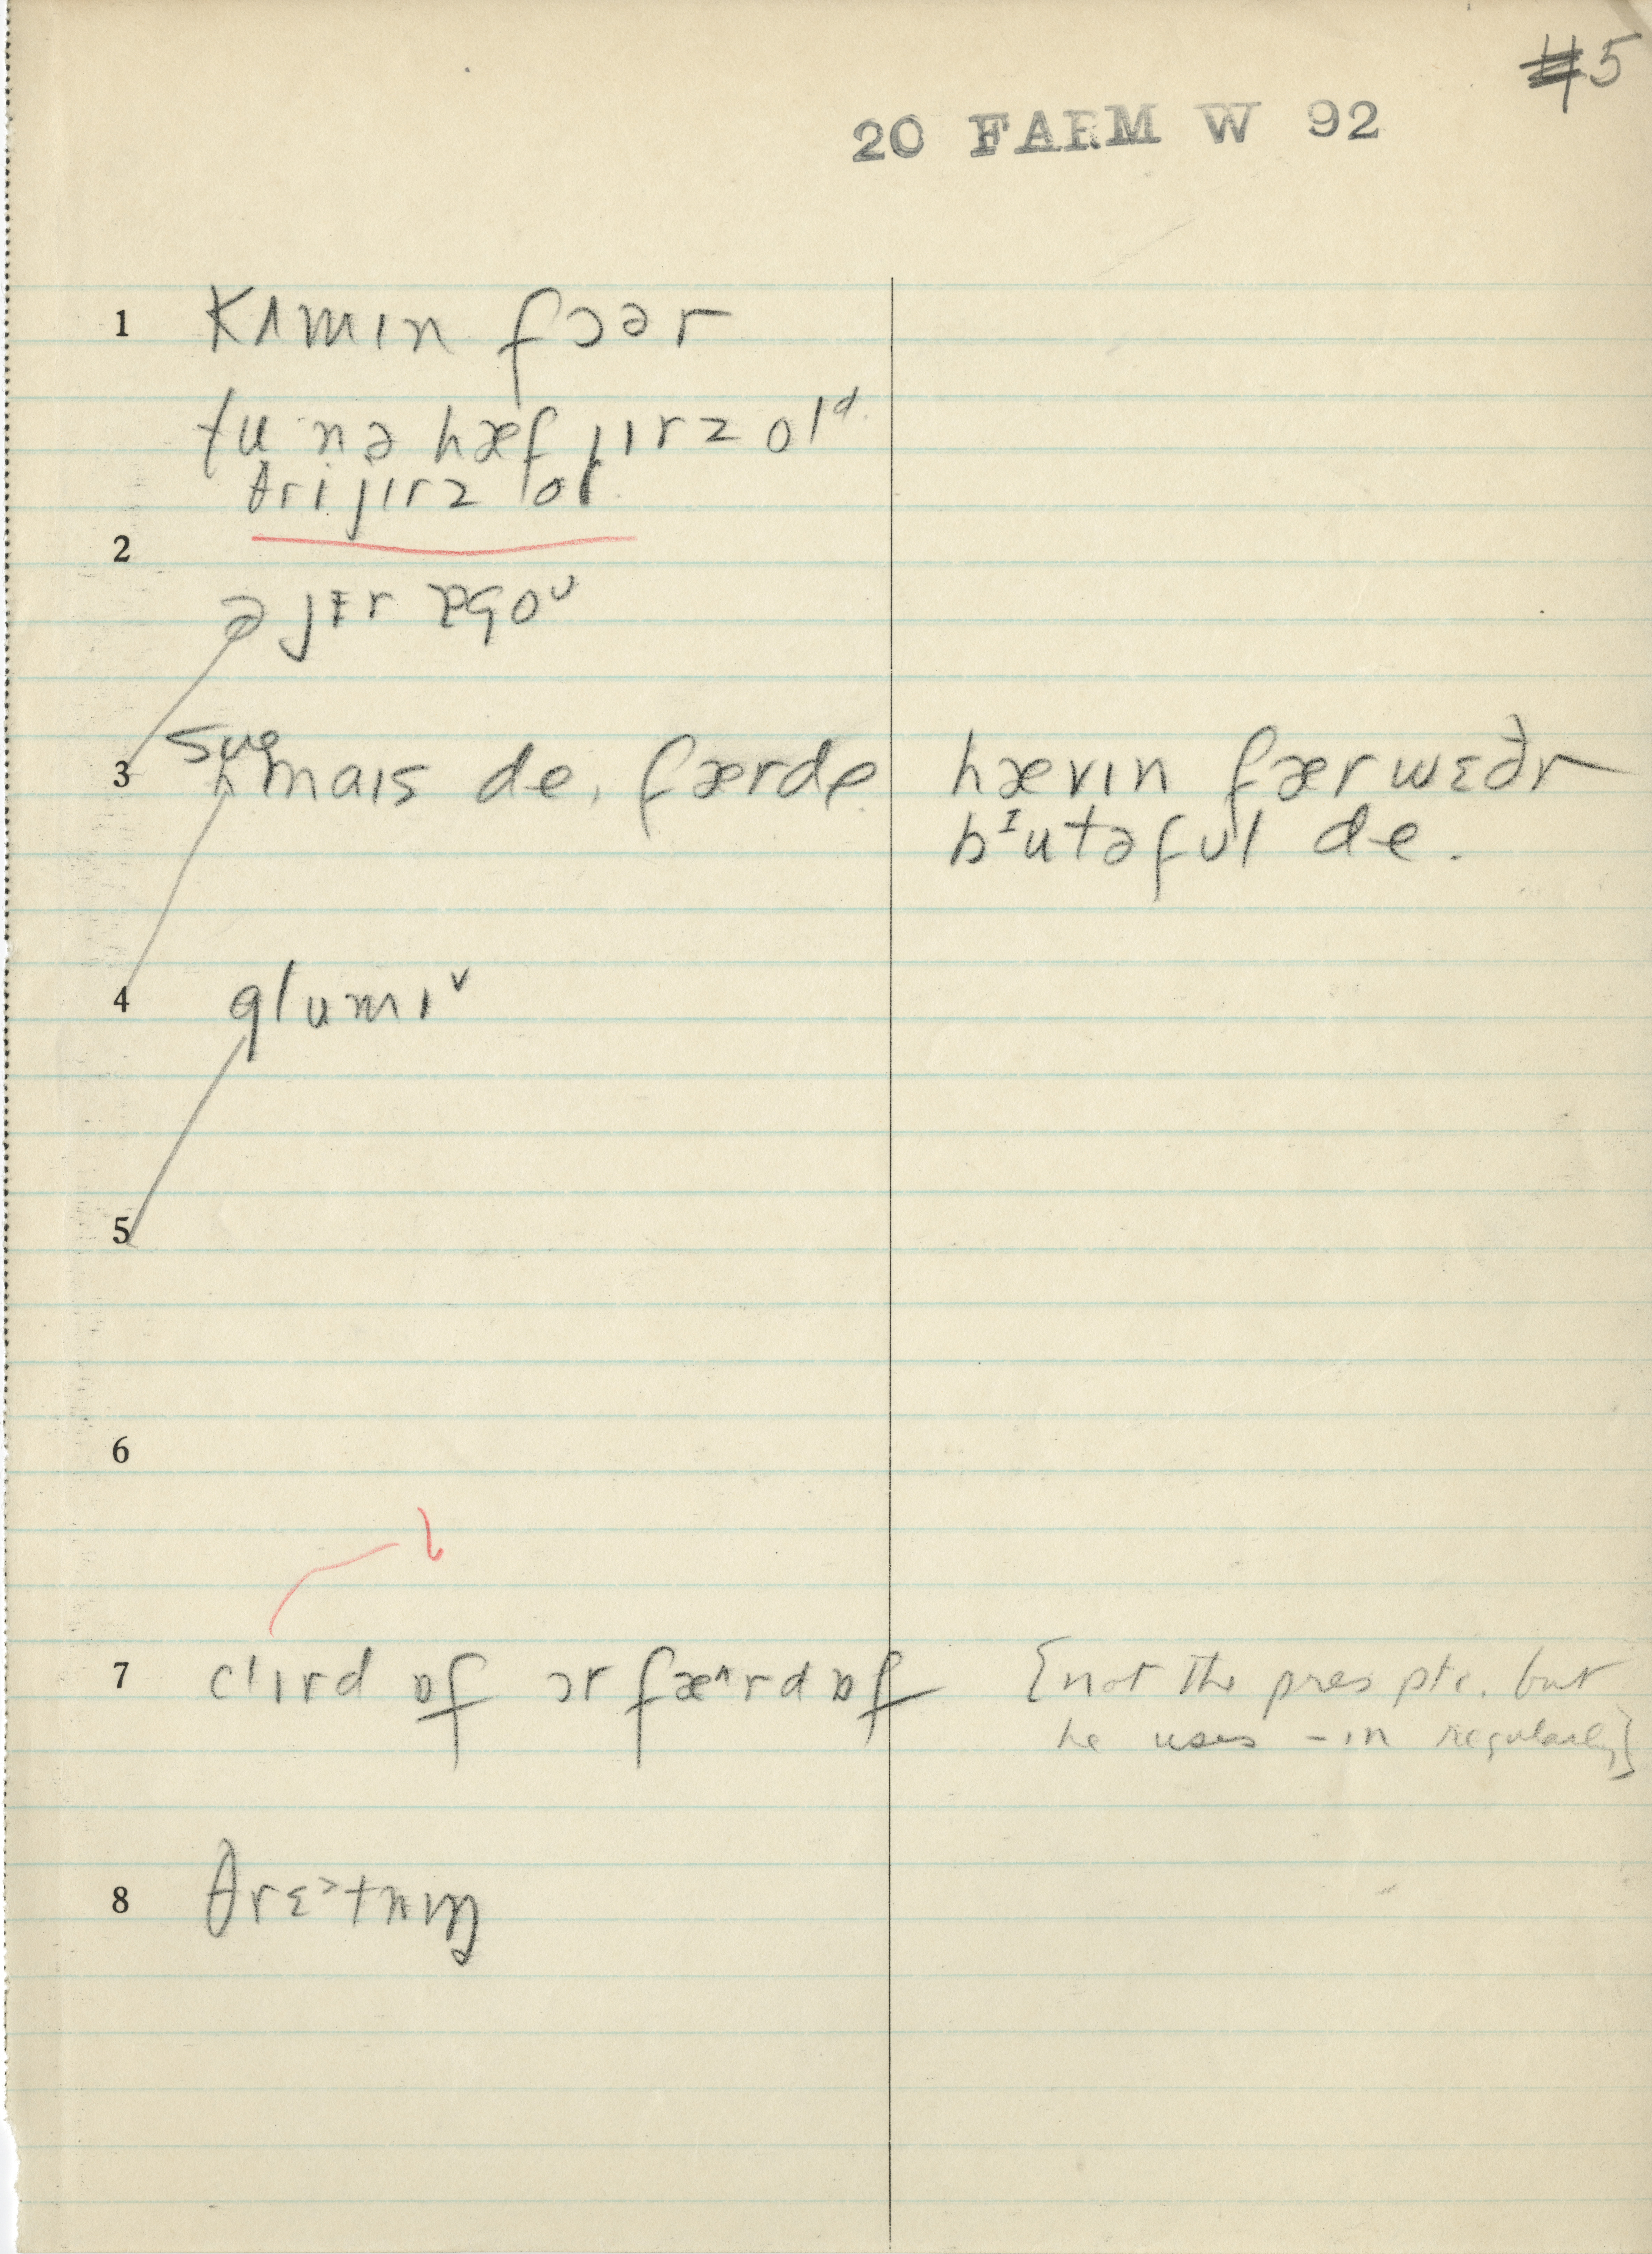 #5
20 FARM W 92
1 kʌmɪn fɔər
tu nə hæf jɪrz olᵈ
θri jɪrz ol
2
ə jɪr əgoᵁ
sʌe
3 nais de, færde hævɪn færwɛðr
bᴵutəful de.
4 glumɪ˅
5
6
7 clɪrd ɒf ɔr fæ^rd ɒf [not the pres ptc. but
he uses -in regularly]
8 θrɛ˃tnɪŋ